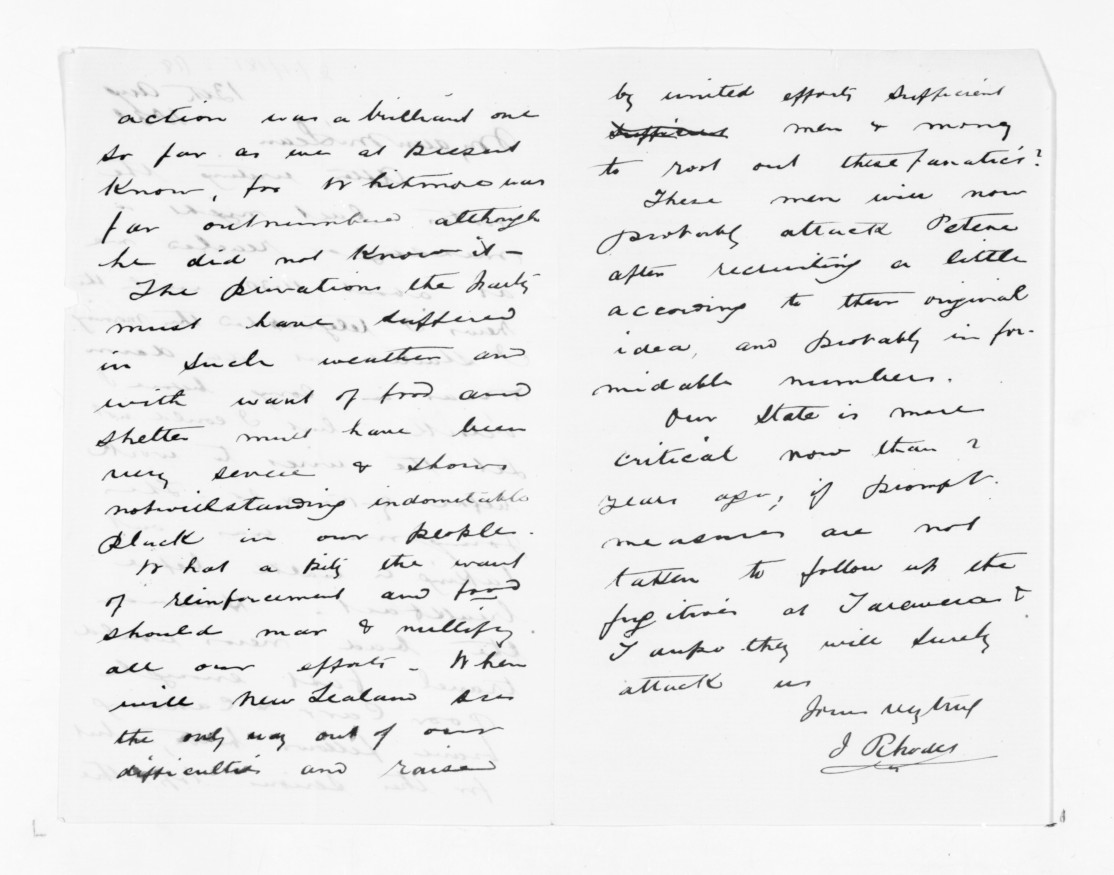 action was a brilliant one
so far as we at present
know, for Whitmore was
far outnumbered although
he did not know it -
The privations the party
must have suffered
in such weather and
with want of food and
shelter must have been
very severe & shows
notwithstanding indomitable
pluck in our people.
What a pity the want
of reinforcement and food
should mar & nullify
all our efforts - When
will New Zealand see
the only way out of our
difficulties and raise
by united efforts sufficient
sufficient men & money
to root out these fanatics?
These men will now
probably attack Petene
after recruiting a little
according to their original
idea, and probably in for-
midable numbers.
Our State is more
critical now than 2
years ago; if prompt
measures are not
taken to follow up the
fugitives at Tarawera &
Taupo they will surely
attack us
Yours very truly
J Rhodes